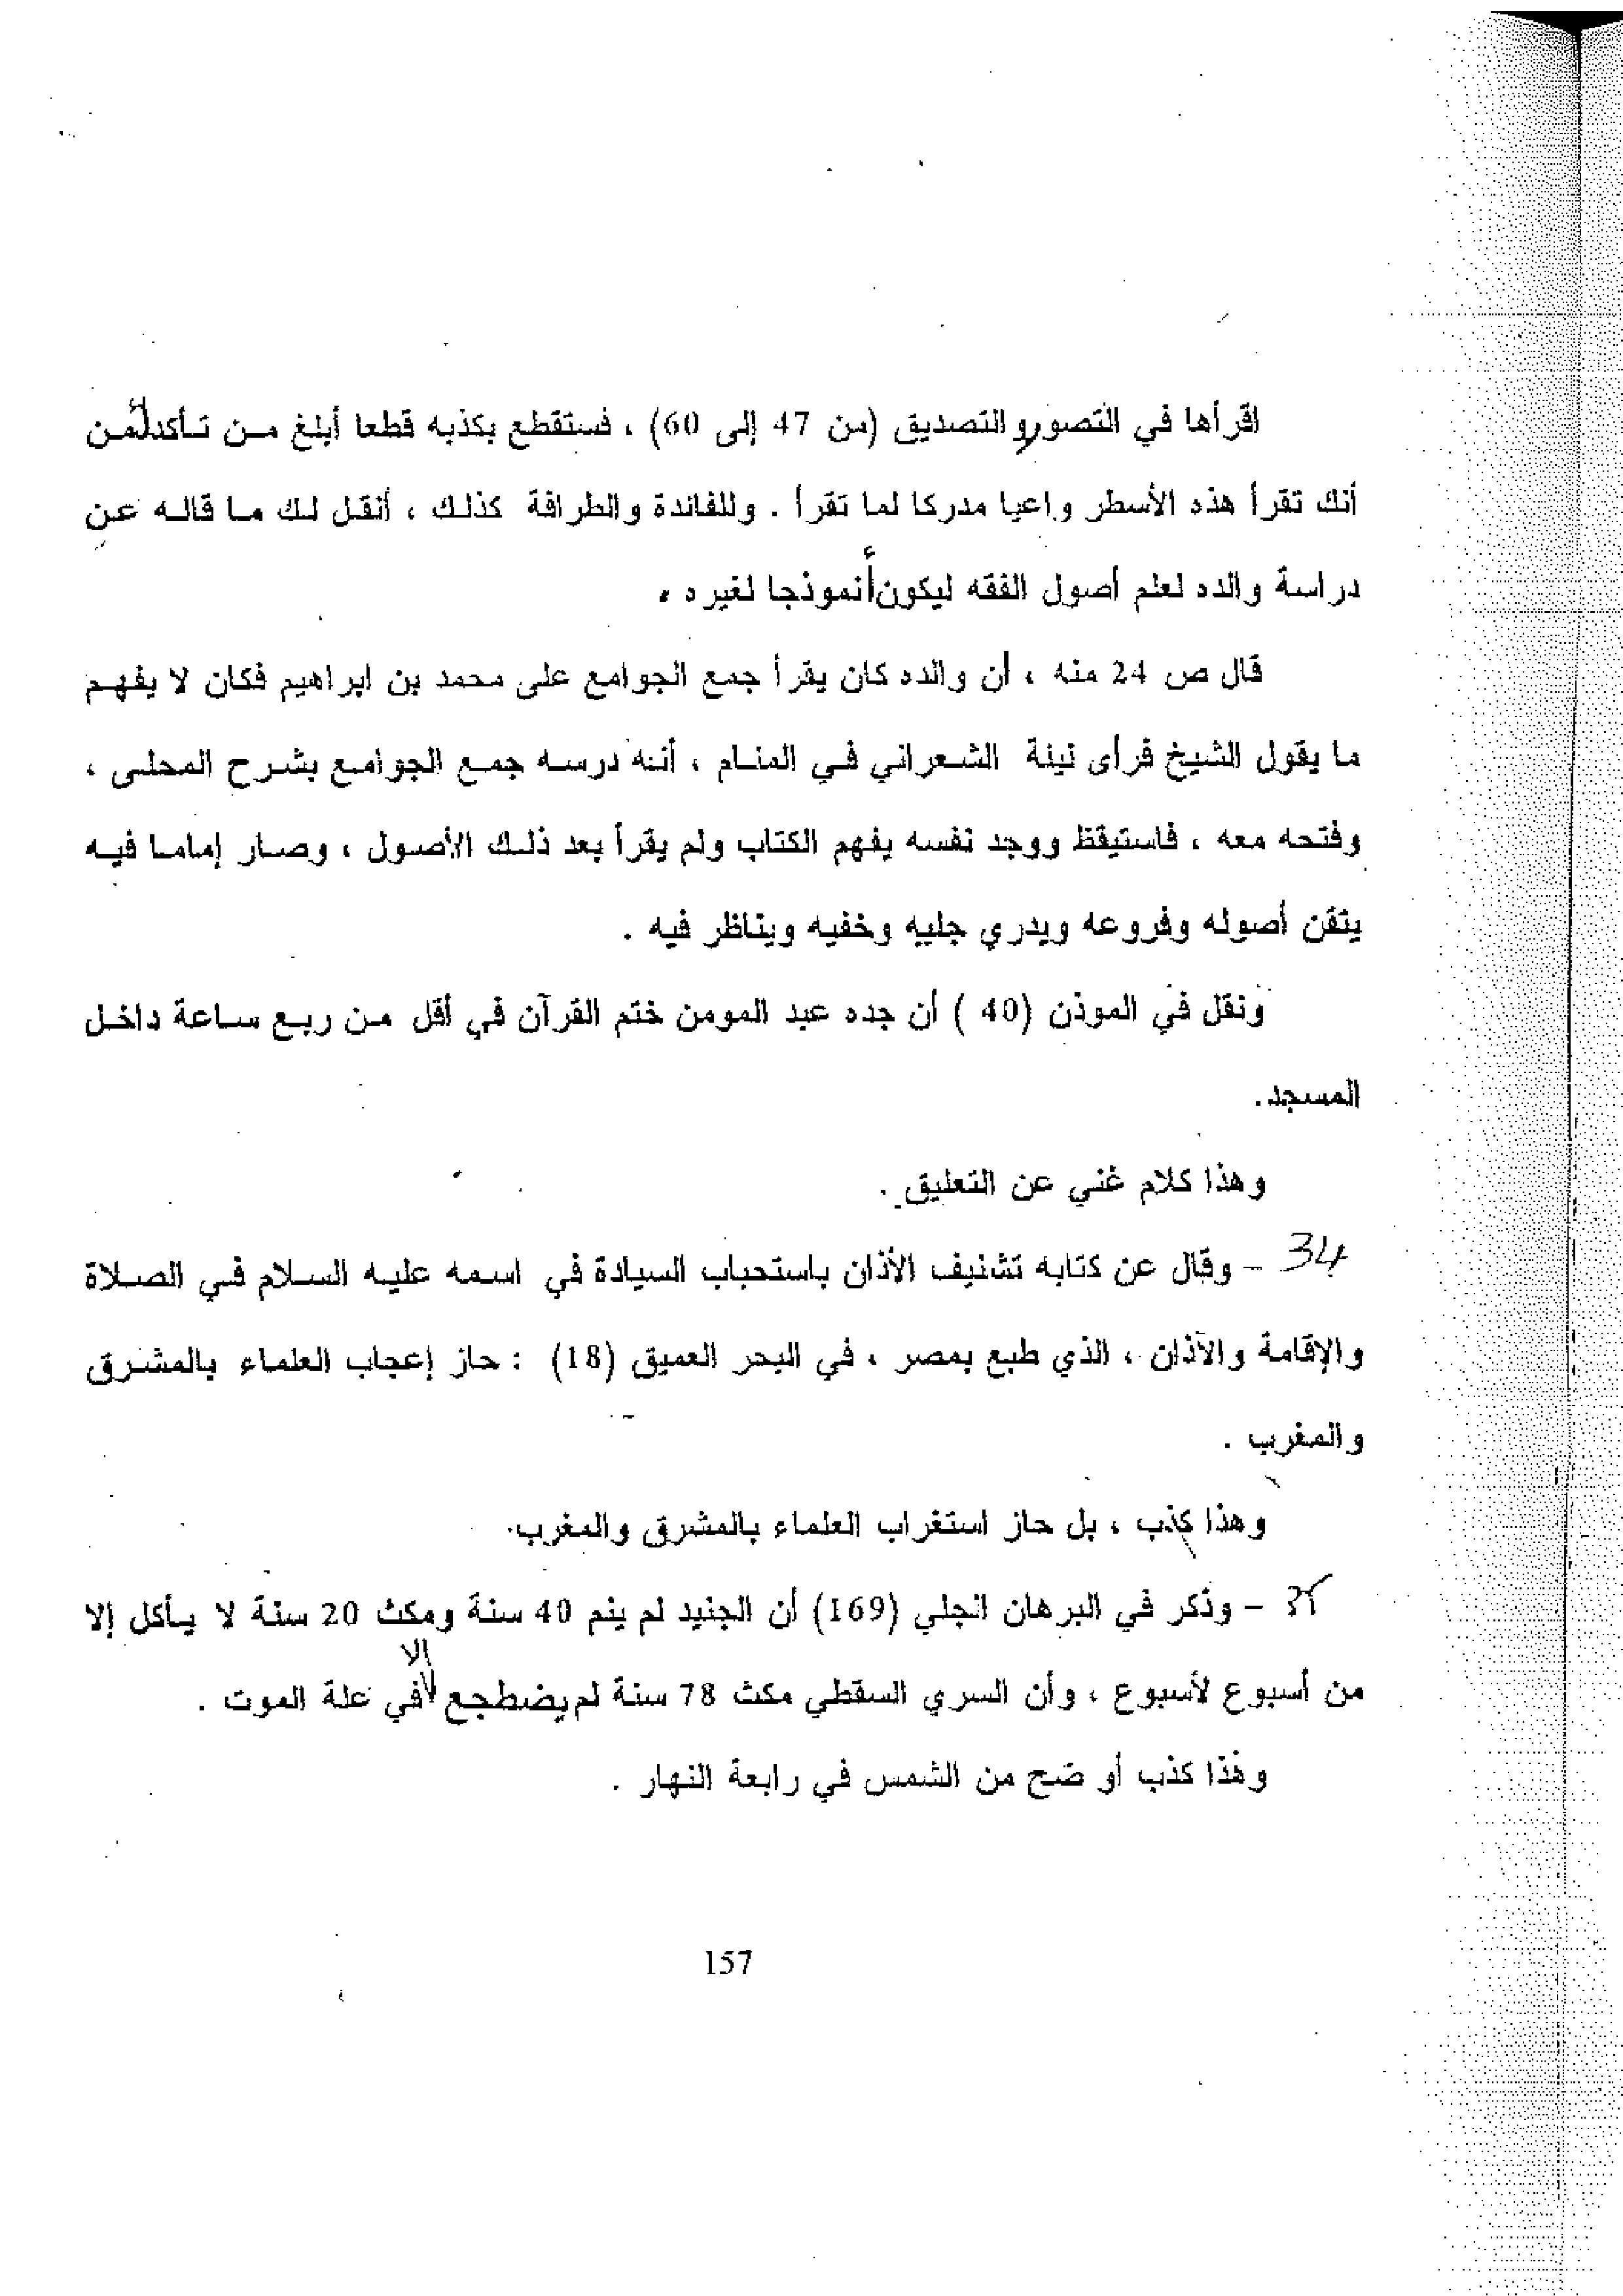 اقرأها في التصور والتصديق (من 47 إلى 60) ، فستقطع بكذبه قطعا أبلغ من تأكدك من
أنك تقرأ هذه الأسطر واعيا مدركا لما تقرأ . وللفائدة والطرافة كذلك ، أنقل لك ما قاله عن
دراسة والده لعلم أصول الفقه ليكون أنموذجا لغيره .
قال ص 24 منه ، أن والده كان يقرأ جمع الجوامع على محمد بن ابراهيم فكان لا يفهم
ما يقول الشيخ فرأى نيلة الشعراني في المنام ، أنه درسه جمع الجوامع بشرح المحلى ،
وفتحه معه ، فاستيقظ ووجد نفسه يفهم الكتاب ولم يقرأ بعد ذلك الأصول ، وصار إماما فيه
يتقن أصوله وفروعه ويدري جليه وخفيه ويناظر فيه .
ونقل في الموذن (40 ) أن جده عبد المومن ختم القرآن في أقل من ربع ساعة داخل
المسجد.
وهذا كلام غني عن التعليق .
34 - وقال عن كتابه تشنيف الأذان باستحباب السيادة في اسمه عليه السلام في الصلاة
والإقامة والآذان ، الذي طبع بمصر ، في البحر العميق (18) : حاز إعجاب العلماء بالمشرق
والمغرب .
وهذا كذب ، بل حاز استغراب العلماء بالمشرق والمغرب.
- وذكر في البرهان الجلي (169) أن الجنيد لم ينم 40 سنة ومكث 20 سنة لا يأكل إلا
من أسبوع لأسبوع ، وأن السري السقطي مكث 78 سنة لم يضطجع الا في علة الموت .
وهذا كذب أو ضح من الشمس في رابعة النهار .
157